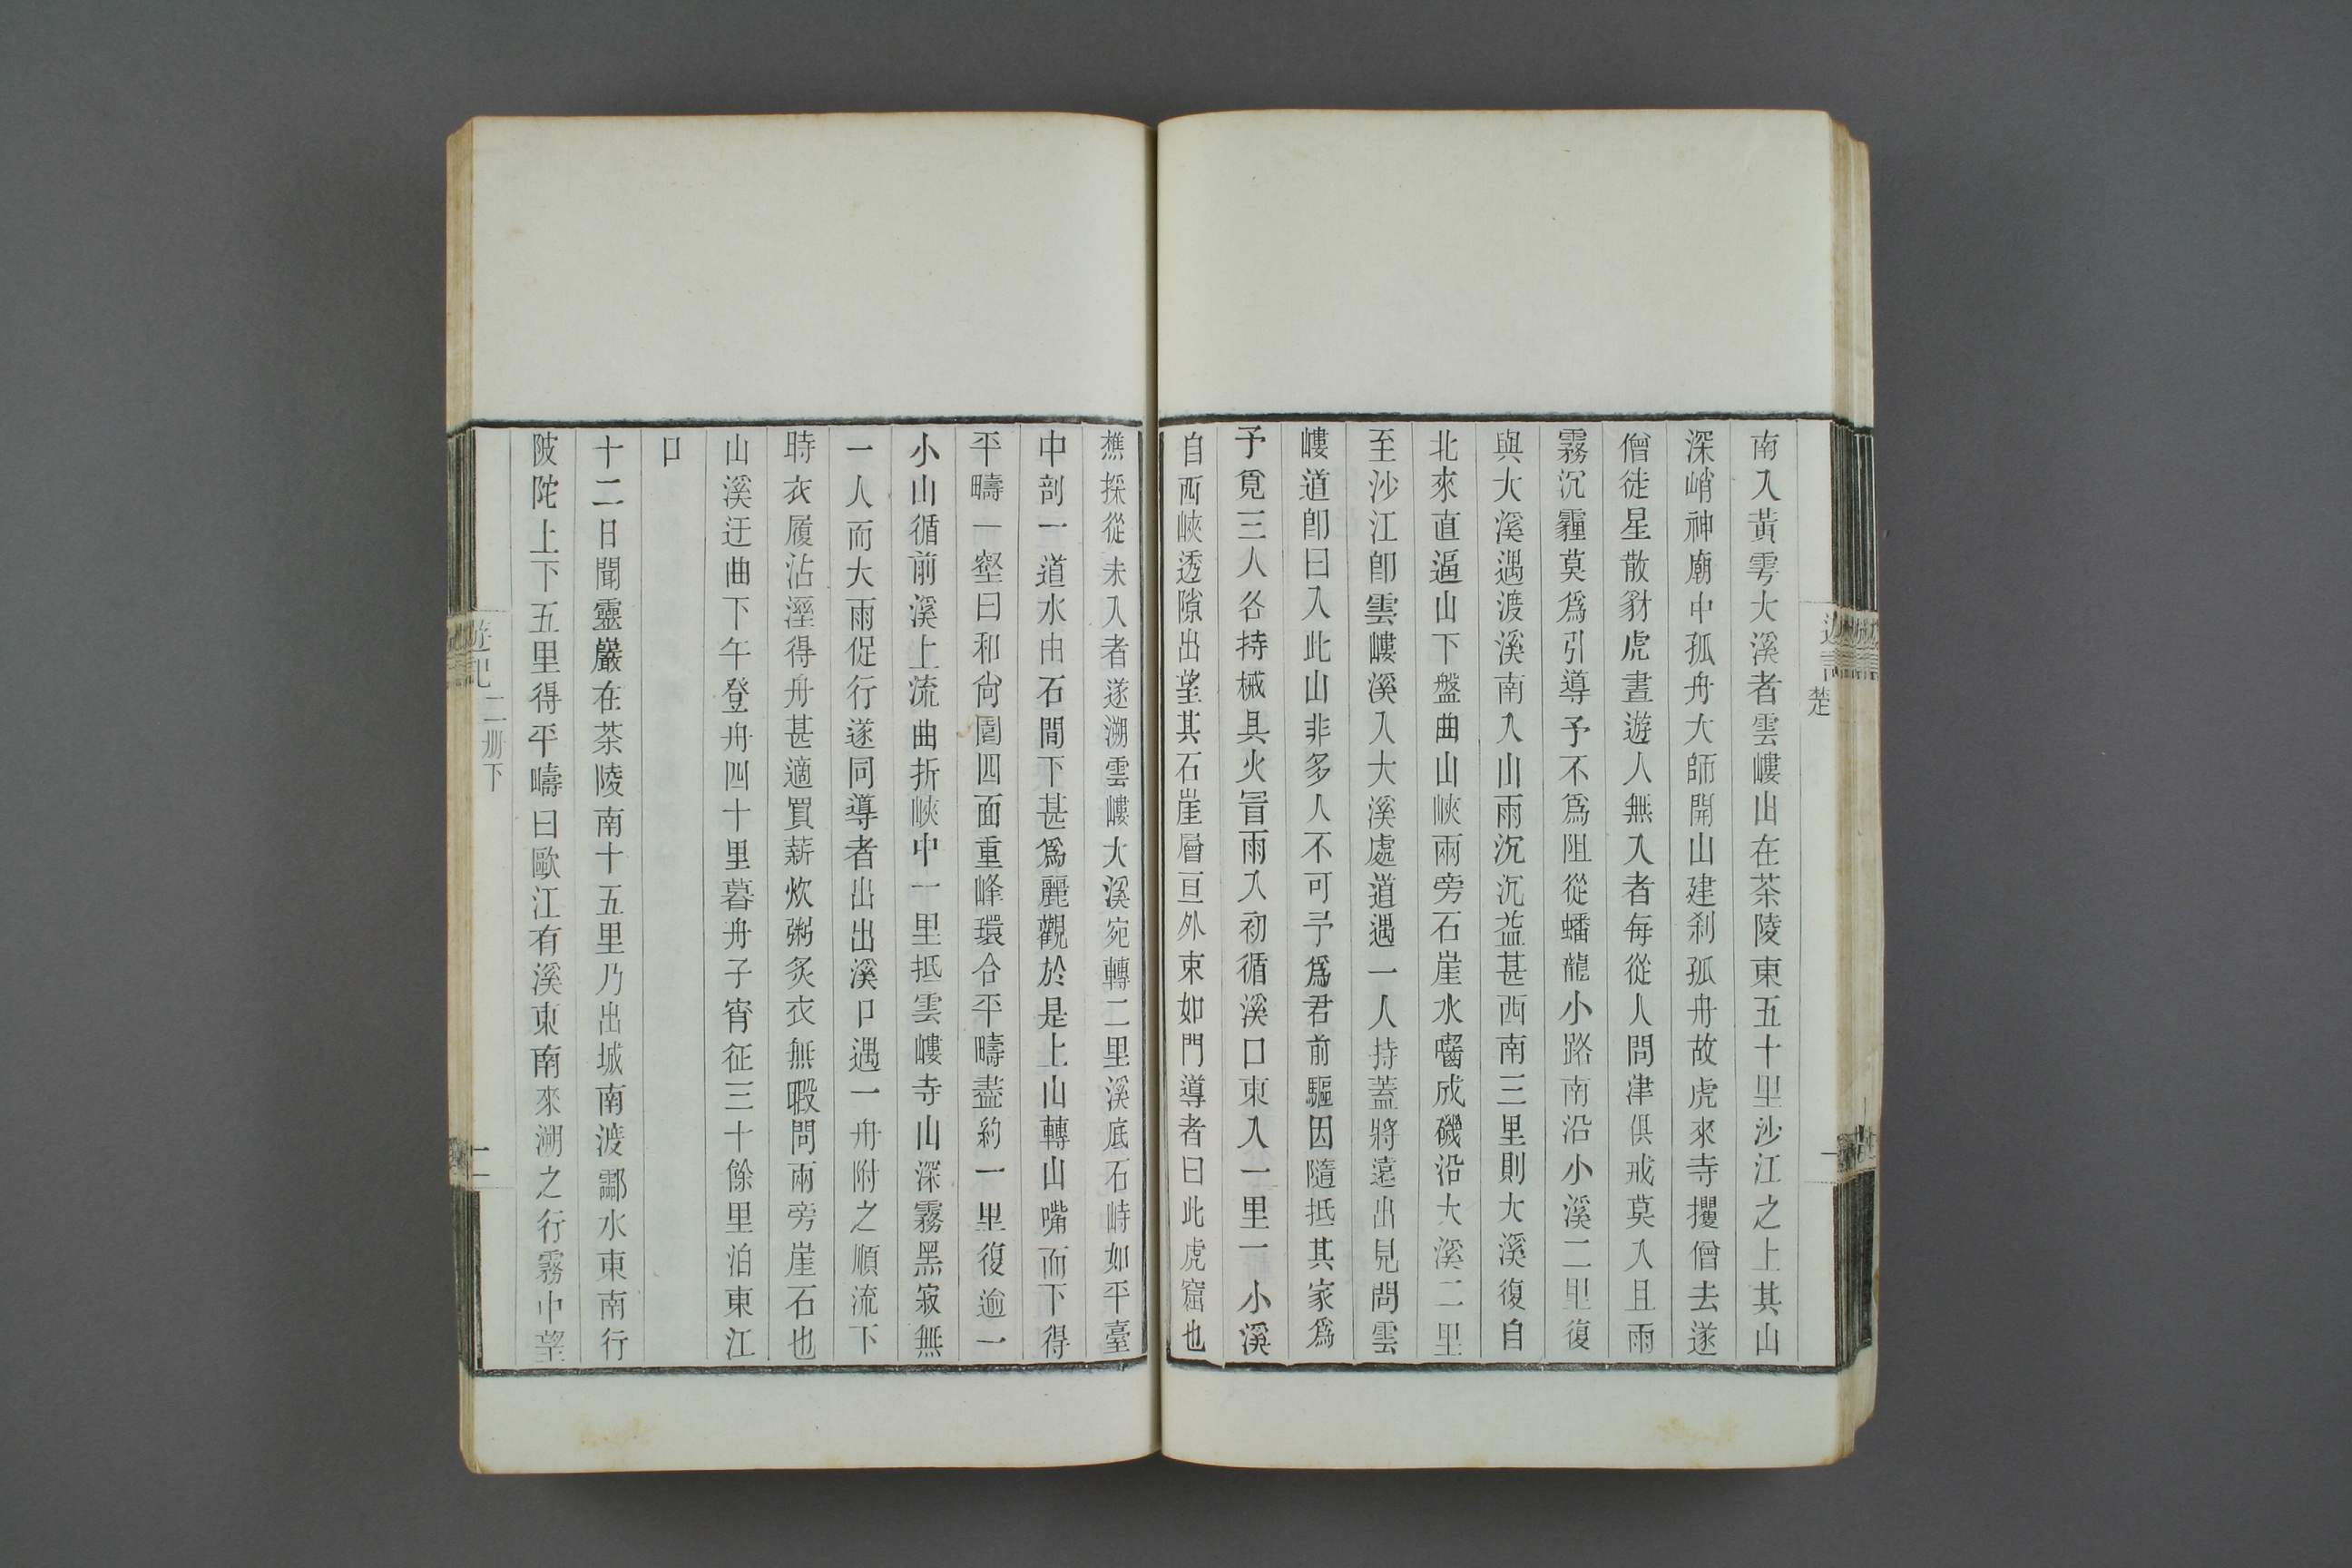 南入黃雩大溪者雲嶁山在茶陵東五十里沙江之上其山
深峭神廟中孤舟大師開山建刹孤舟故虎來寺攫僧去遂
僧徒星散豺虎晝遊人無入者每從人問津俱戒莫入且雨
霧沉霾莫爲引導予不爲阻從蟠龍小路南沿小溪二里復
與大溪遇渡溪南入山雨沉沉益甚西南三里則大溪復自
北來直逼山下盤曲山峽兩旁石崖水囓成磯沿大溪二里
至沙江卽雲嶁溪入大溪處道遇一人持蓋將遠出見問雲
嶁道卽曰入此山非多人不可予爲君前驅因隨抵其家爲
予覓三人各持械具火冒雨入初循溪口東入一里一小溪
自西峽透隙出望其石崖層亘外束如門導者曰此虎窟也
樵採從未入者遂溯雲嶁大溪宛轉二里溪底石峙如平臺
中剖一道水由石間下甚爲麗觀於是上山轉山嘴而下得
平疇一壑曰和尙園四面重峰環合平疇盡約一里復逾一
小山循前溪上流曲折峽中一里抵雲嶁寺山深霧黑寂無
一人而大雨促行遂同導者出出溪口遇一舟附之順流下
時衣履沾溼得舟甚適買薪炊粥炙衣無暇問兩旁崖石也
山溪迂曲下午登舟四十里暮舟子宵征三十餘里泊東江
口
十二日聞靈巖在茶陵南十五里乃出城南渡酃水東南行
陂陀上下五里得平疇曰歐江有溪東南來溯之行霧中望
遊記
二册下
二
楚
一